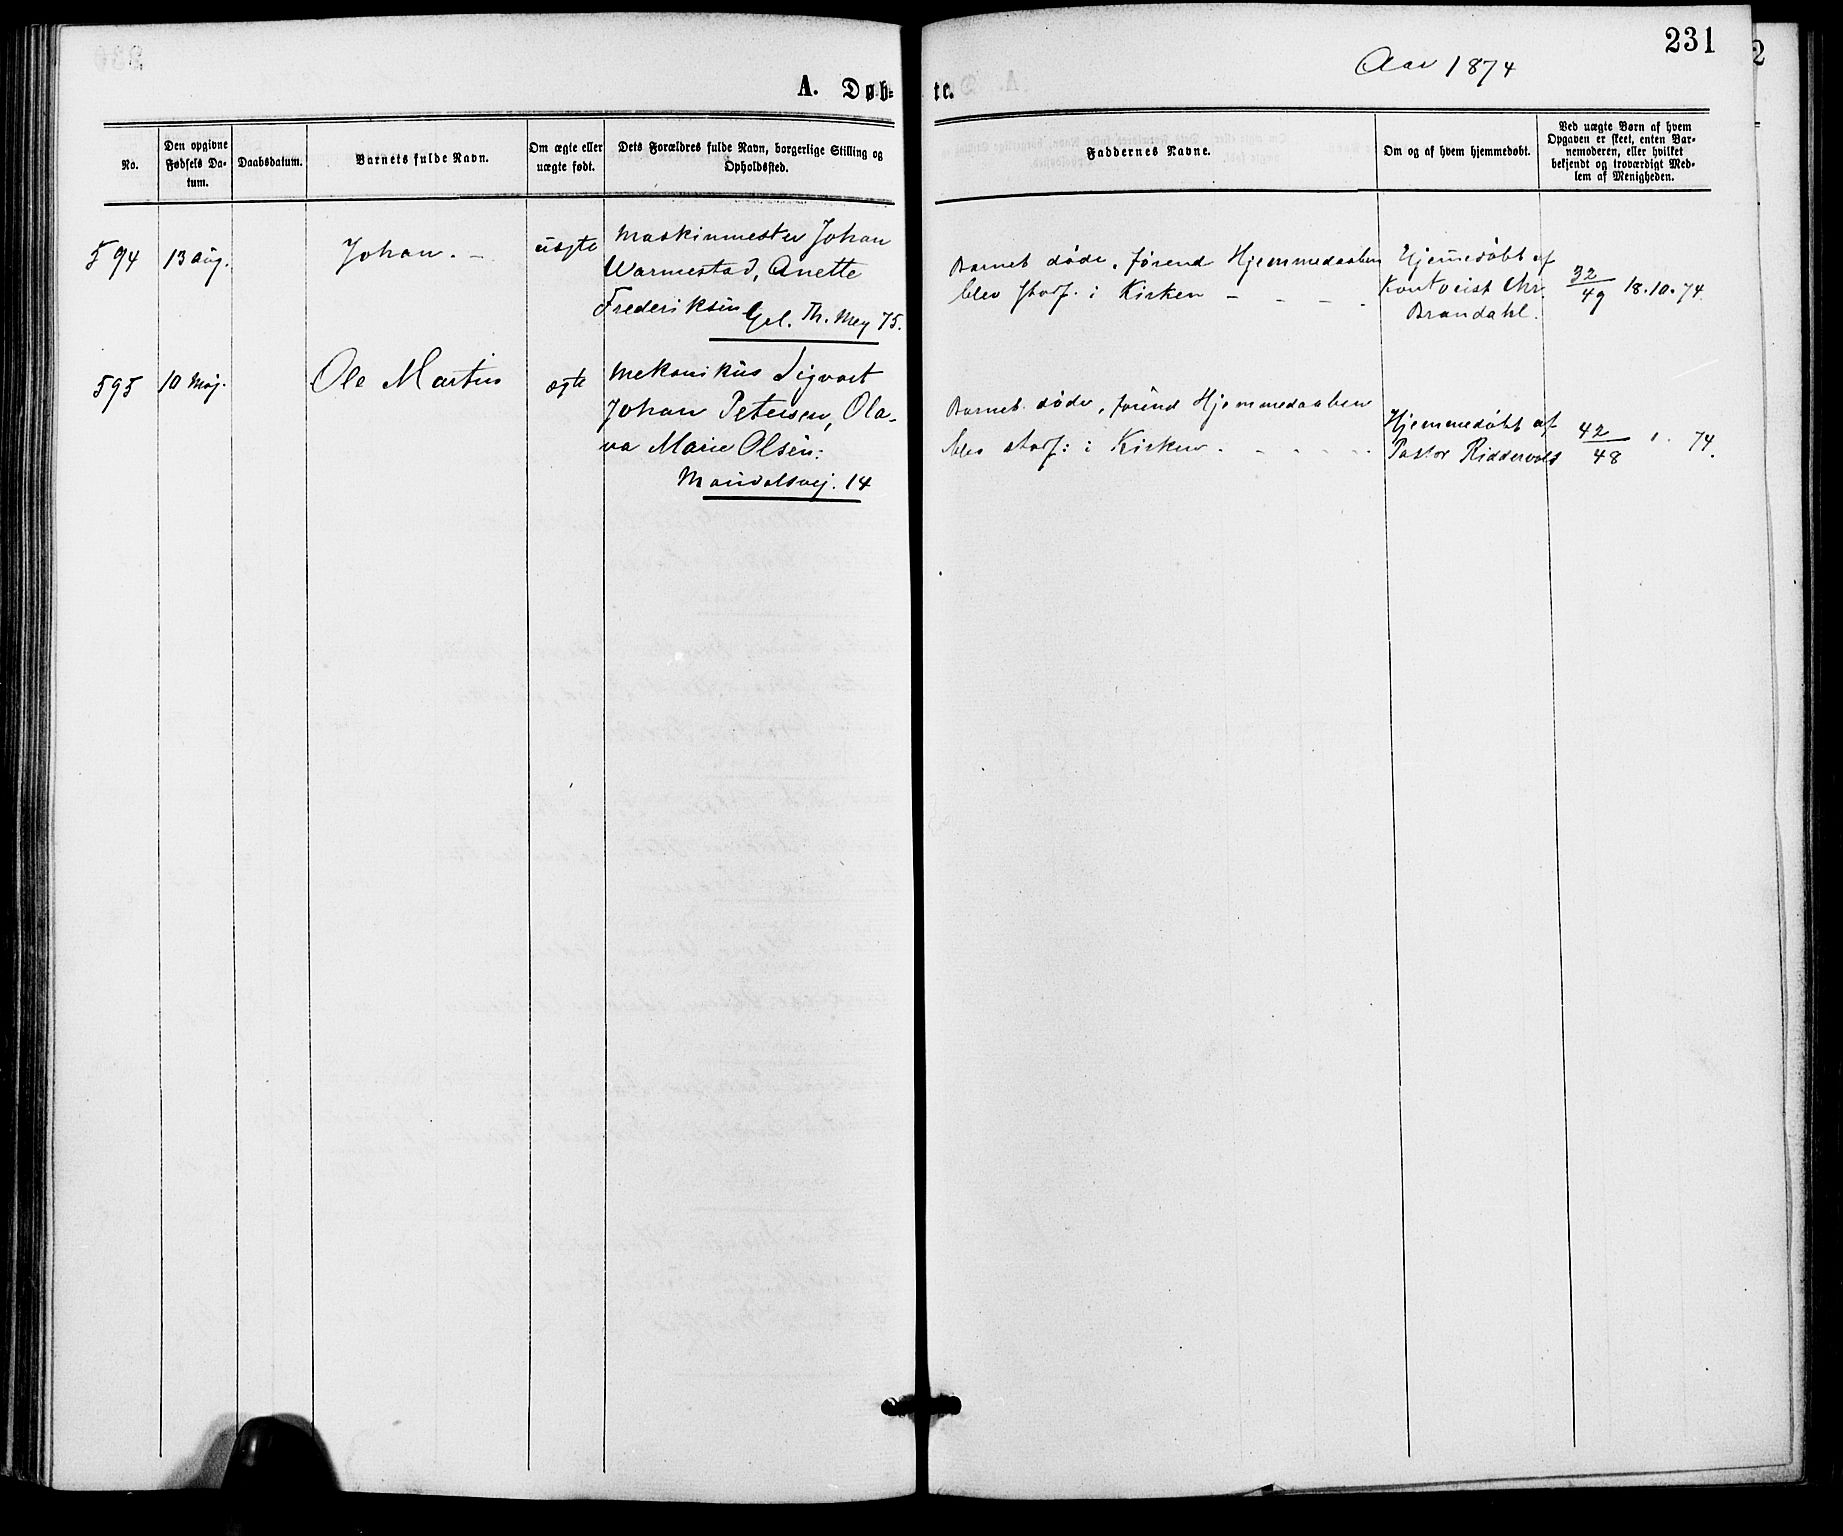 231
Aar 1874
A. Døb-
te.
No.
Den opgivne
Fødsels Da-
tum.
Daabsdatum.
Barnets fulde Navn.
Om ægte eller
uægte født.
Dets Forældres fulde Navn, borgerlige Stilling og
Opholdssted.
Faddernes Navne.
Om og af hvem hjemmedøbt.
Ved uægte Børn af hvem
Opgaven er skeet, enten Bar-
nemoderen, eller hvilket
bekjendt og troværdigt Med-
lem af Menigheden.
594
13 Aug.
Johan.
uægte
Maskinmester Johan
Warmestad, Anette
Frederiksen
Grl. Th. Mey 75.
Barnet døde, førend Hjemmedaaben
blev stadf. i Kirken
Hjemmedøbt af
Chr.
Brandahl.
32/49 18.10.74.
595
10 Maj.
Ole Martin
ægte
Mekanikus Sigvart
Johan Petersen, Ola-
va Marie Olsen:
14
Barnet døde, førend Hjemmedaaben
blev stadf: i Kirken
Hjemmedøbt af
Pastor Riddervold
42/48 74.